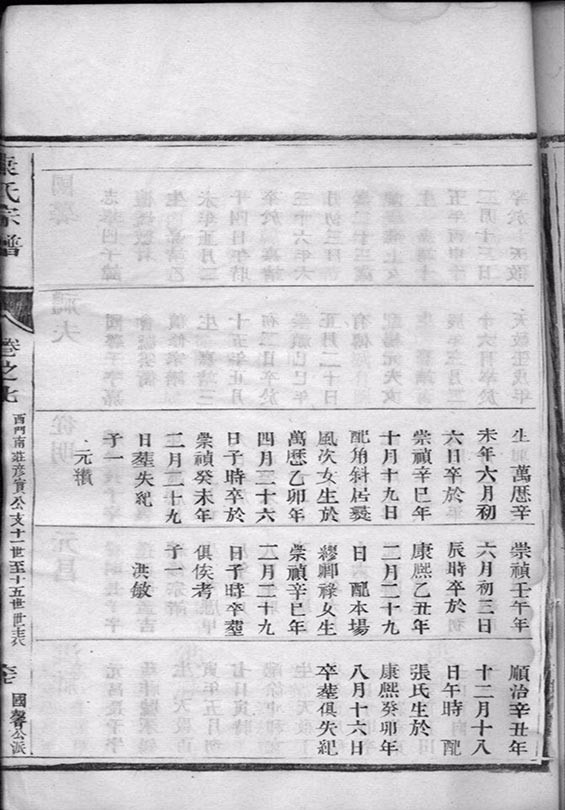 生 萬曆辛
未年六月初
六日卒於年
崇禎辛巳年
十月十九日
配角斜居龔
風次女生於
萬曆乙卯年
四月二十六
日子時卒於
崇禎癸未年
二月二十九
日塟失紀
子一
元纘
崇禎壬午年
六月初三日
辰時卒於
康熙乙丑年
二月二十九
日 配本場
繆卿祿女生
崇禎辛巳年
八月二十九
日子時卒塟
俱俟考
子一
洪敏
順治辛丑年
十二月十八
日午時配
張氏生於
康熙癸卯年
八月十六日
卒塟俱失紀
氏宗譜
卷之七
西門南莊彥賓公支十一世至十五世世表
國馨公派